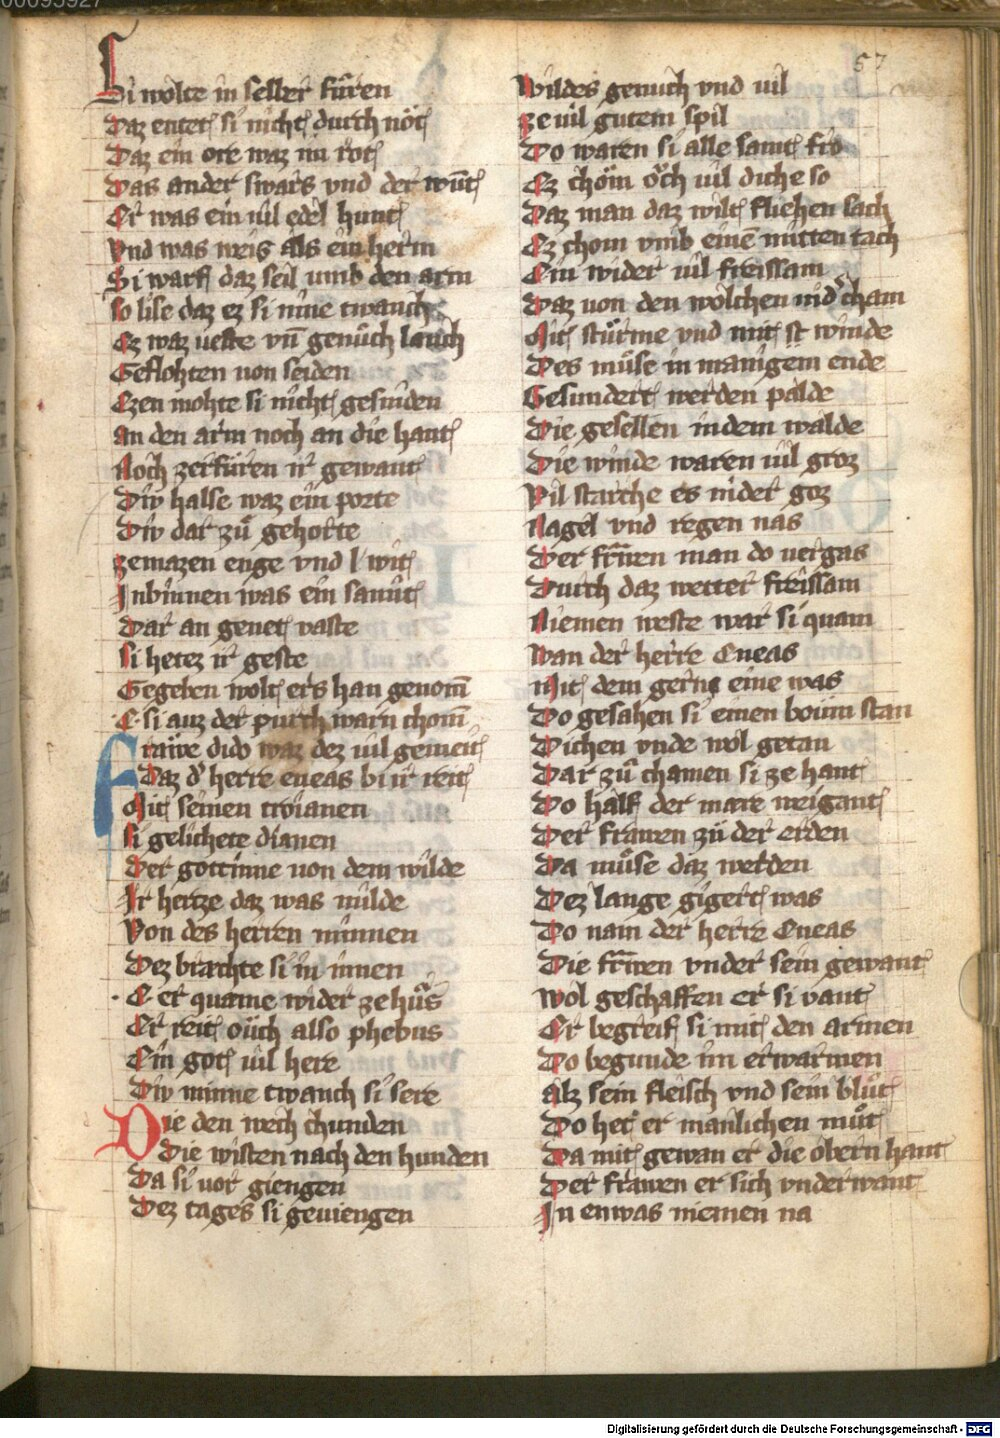 00095927
57
Si wolte in selber fůren
Daz entet si nicht durch nőt
Daz ein ore waz im rot
Das ander swars vnd der můt
Er was ein vil edel hunt
Vnd was weis als ein herm
Si warff daz seil umb den arm
so lise daz ez si nine twanch
Ez waz ueste vn̄ genůch lanch
Geflohten von seiden
Ezen mohte si nicht gesniden
an den arm noch an die hant
Noch zerfůren ir gewant
Div halse waz ein porte
Div dar zů gehorte
zemazen enge vnd wit
Inbinnen was ein samit
Dar an genet vaste
si hetez ir geste
Gegeben wolt ers han genom̄
E si auz der purch warn chom̄
Frawe dido waz dez vil gemeit
Daz d' herre eneas bi ir reit
Mit seinen troianen
si gelichete dianen
Der gottinne von dem wilde
Ir hertze daz was milde
Von des herren minnen
Dez brachte si in innen
E er quame wider ze hůs
Er reit oůch also phebus
Ein got vil here
Div minne twanch si sere
Die den wech chunden
Die wisten nach den hunden
Da si vor giengen
Dez tages si geuiengen
Wildes genuch vnd uil
ze uil gutem spil
Do waren si alle samt fro
Ez chőm őch uil diche so
Daz man daz wilt fliehen sach
Ez chom vmb einē mitten tach
Ein wider uil freissam
Daz von den wolchen nid' cham
Mit stůrme vnd mit st winde
Des můse in manigem ende
Gesundert werden palde
Die gesellen in dem walde
Die winde waren uil groz
Vil starche es nider goz
Hagel vnd regen nas
Der frawen man do uergas
Durch daz wetter freissam
Niemen weste war si quam
Wan der herre Eneas
Mit dem gerne eine was
Do gesahen si einen boum stan
Dichen vnde wol getan
Dar zů chamen si ze hant
Do half der mare weigant
Der frawen zů der erden
Da můse daz werden
Dez lange gigert was
Do nam der herre Eneas
Die frawen vnder sein gewant
Wol geschaffen er si vant
Er begreif si mit den armen
Do begunde im erwarmen
alz sein fleisch vnd sein blůt
Do het er manlichen můt
Da mit gewan er die obern hant
Der frawen er sich vnderwant
In enwas niemen na
Digitalisierung gefördert durch die Deutsche Forschungsgemeinschaft - DFG